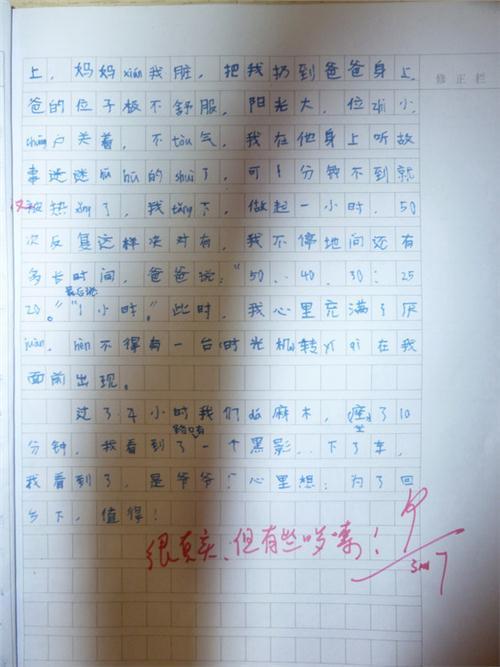 上，妈妈xián我脏，把我扔到爸爸身上，
修正栏
爸的位子板不舒服，阳光大，位zhi小，
chuāng户关着，不tòu气，我在他身上听故
事迷迷hū hū的shuì了，可1分钟不到就
又被热xǐng了，我tǎng下，做起一小时，50
次反复这样决对有，我不停地问还有
多长时间，爸爸说：“50、40、30：25
最后说
20。”“1小时。”此时，我心里充满了厌
juàn，hèn不得有一台时光机转yí qì在我
面前出现。
过了4小时我们dǎ麻木，座了10
坐
分钟，我看到了一个黑影，下了车，
我看到了，是爷爷！心里想：为了回
乡下，值得！
很真实，但有些哆嗦！